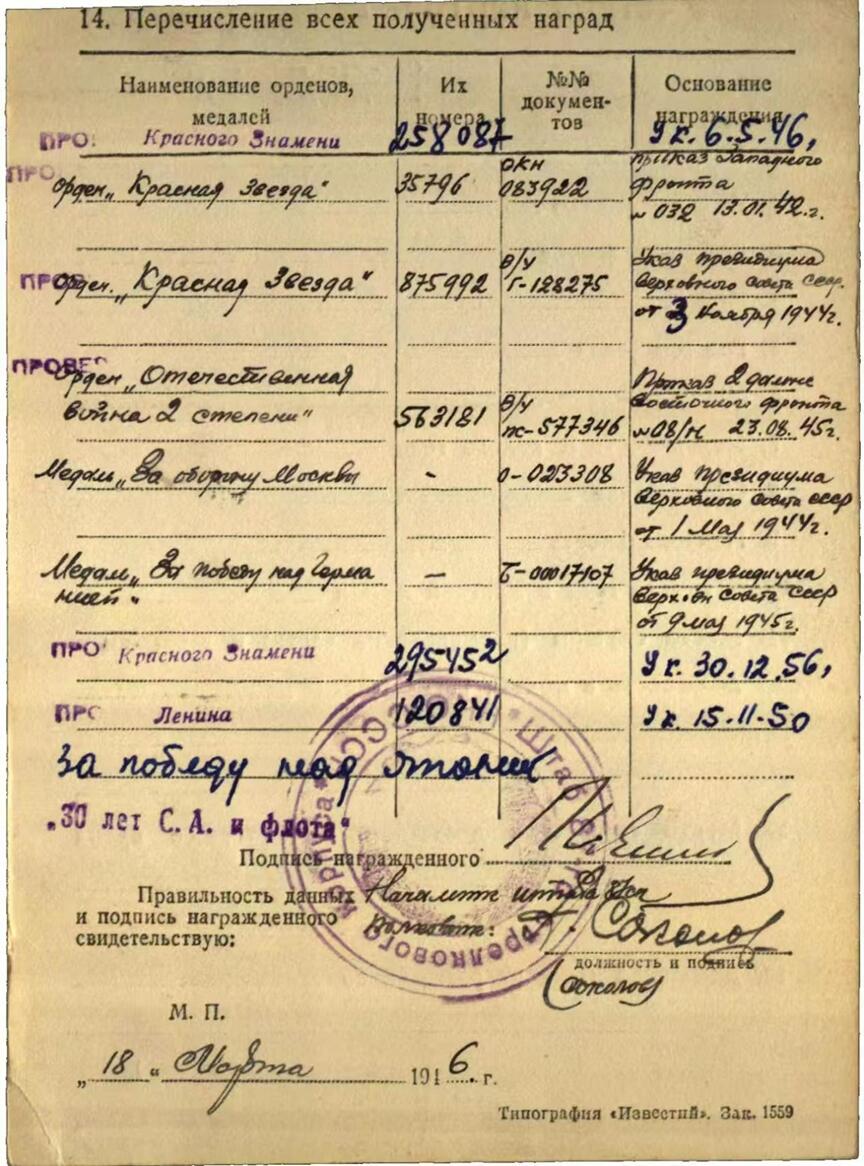 14. Перечисление всех полученных наград
Наименование орденов, медалей
Их номера
№№ документов
Основание награждения
ПРО Красного Знамени 258087 Ук. 6.5.46,
ПРО Орден „Красная Звезда" 35796 ОКН 083922 приказ Западного фронта
№ 032 13.01.42.г.
ПРОВ Орден „Красная Звезда" 875992 в/ч Г-128275 Указ президиума
Верховного Совета СССР.
от 3 Ноября 1944г.
ПРОВЕР
Орден „Отечественная
война 2 степени" 563181 в/ч 577346 Приказ 2 дальне
восточного фронта
№ 08/н 23.08.45г.
Медаль „За оборону Москвы - 0-023308 Указ президиума
Верховного Совета СССР
от 1 Мая 1944г.
Медаль „За победу над Герма
нией" — 00017107 Указ президиума
Верховн Совета СССР
от 9 мая 1945г.
ПРО Красного Знамени 295452 Ук. 30.12.56,
ПРО Ленина 120841 Ук. 15.11.50
За победу над Японией
„30 лет С.А. и флота"
Подпись награжденного
Правильность данных Начальник штаба
и подпись награжденного полковник: Соколов
свидетельствую:
должность и подпись
(Соколов)
М. П.
„18" Марта 1946. г.
Типография «Известий». Зак. 1559
Штаб
стрелкового корпуса